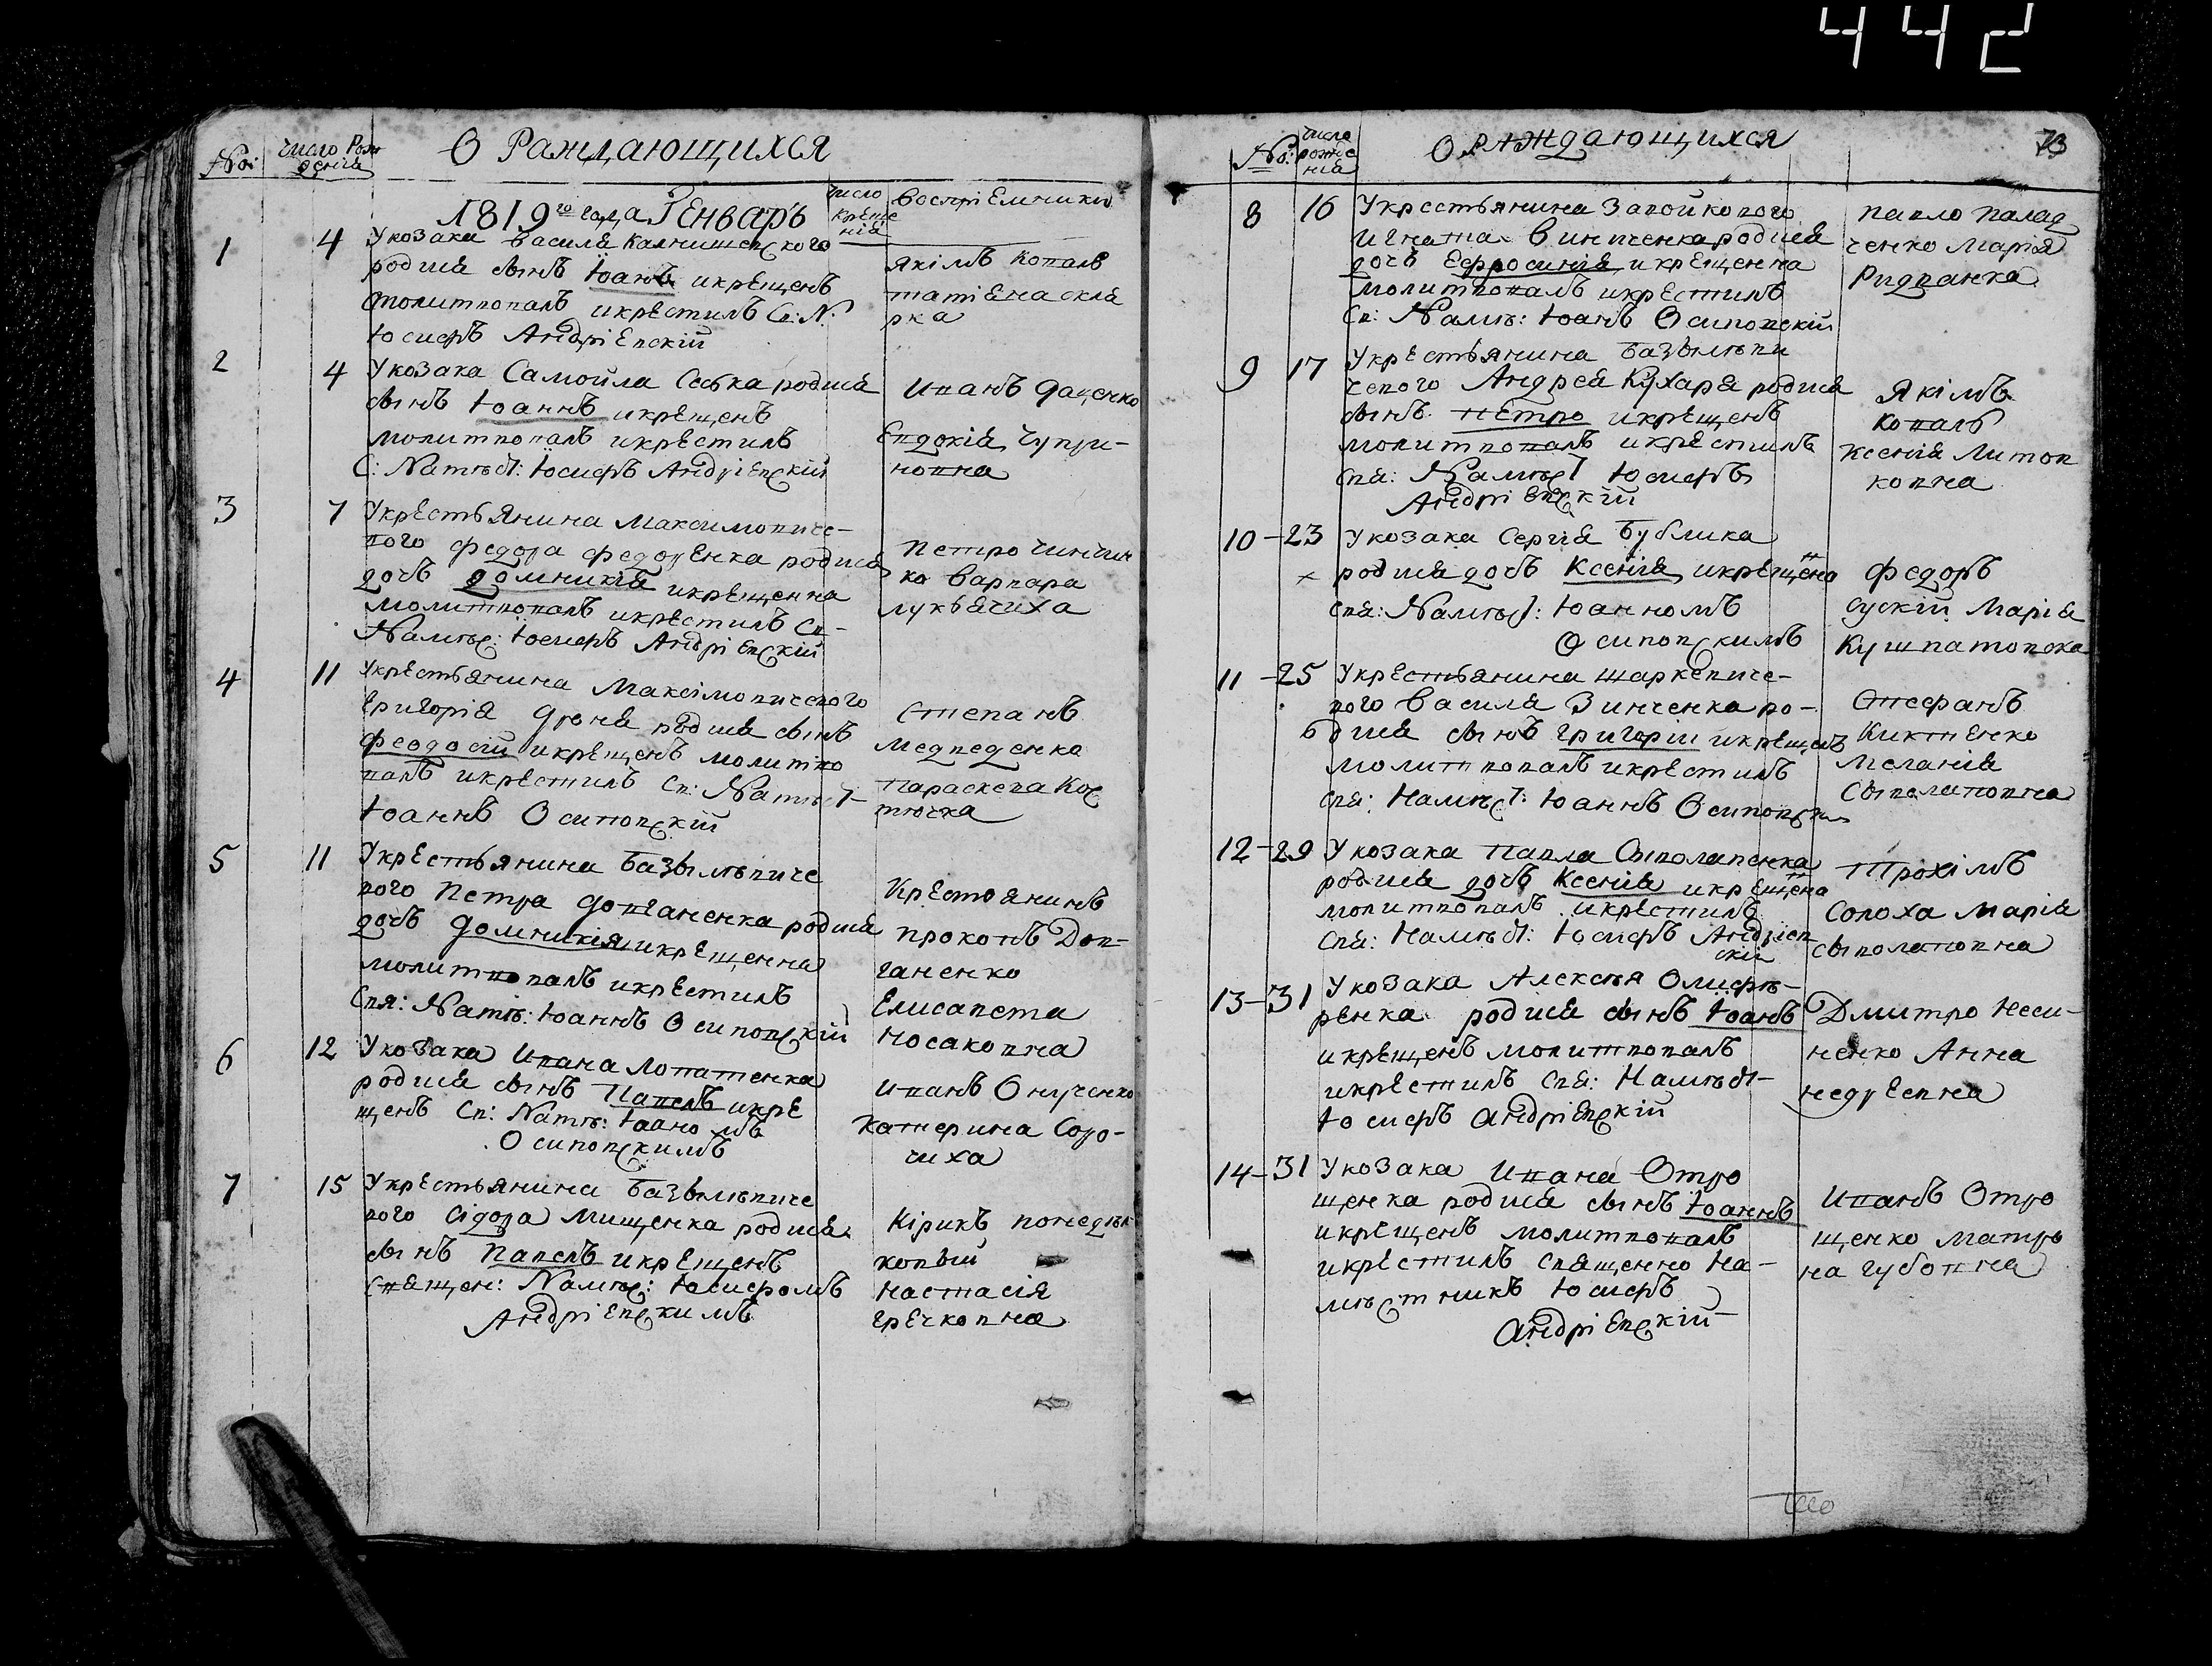 442
№:
число Рож
денія
О Раждающихся
1819го года Генварь
число
креще
нія
восприемники
1
4
У козака Василя Калнишевского
родися сынъ Іоанъ и крещенъ
молитвовалъ и крестилъ Св: N:
Іосифъ Андріевскій
Якімъ Коваль
татіяна скля
рка
2
4
У козака Самойла Себка родися
сынъ Іоаннъ и крещенъ
молитвовалъ и крестилъ
С: Намѣст: Іосифъ Андріевскій
Иванъ Даценко
Евдокія Чупри-
новна
3
7
У крестьянина Максимовиче-
вого Федора Федоренка родися
дочь Домникія и крещенна
молитвовалъ и крестилъ Св-
Намѣс: Іосифъ Андріевскій
Петро Чинчин
ко Варвара
лукьячиха
4
11
У крестьянина Максімовичевого
Григорія Дроня родися сынъ
Феодосій и крещенъ молитво
валъ и крестилъ Св: Намѣст-
Іоаннъ Осиповскій
Степанъ
Медведенко
Параскева Кос
тючка
5
11
У крестьянина Базылѣвиче
вого Петра Довганенка родися
дочь Домникія и крещенна
молитвовалъ и крестилъ
Свя: Намѣ: Іоаннъ Осиповскій
Крестьянинъ
Прокопъ Дов-
ганенко
Елисавета
Носаковна
6
12
У козака Ивана Лопатенка
родися сынъ Павелъ и кре
щенъ Св: Намѣ: Іоаномъ
Осиповскимъ
Иванъ Онученко
Катерина Соро-
чиха
7
15
У крестьянина Базылѣвиче
вого Сідора Мищенка родися
сынъ Павелъ и крещенъ
Священ: Намѣс: Іосифомъ
Андріевскимъ
Кірикъ понедѣл
ковый
Настасія
Гречковна
№:
число
рожде
нія
О раждающихся
73
8
16
У крестьянина Завойкового
Игната Винченка родися
дочь Ефросинія и крещенна
молитвовалъ и крестилъ
Св: Намѣ: Іоанъ Осиповскій
Павло Палад
ченко Марія
Ридванка
9
17
У крестьянина Базылѣви
чевого Андрея Кухаря родися
сынъ Петро и крещенъ
молитвовалъ и крестилъ
Свя: Намѣст Іосифъ
Андріевскій
Якімъ
Коваль
Ксенія Литов
ковна
10-23
У козака Сергія Бублика
× родися дочь Ксенія и крещенна
Свя: Намѣст: Іоанномъ
Осиповскимъ
Федоръ
Сускій Марія
Кушватовска
11-25
У крестьянина Шаркевиче-
вого Василя Зинченка ро-
дися сынъ Григорій и крещенъ
молитвовалъ и крестилъ
Свя: Намѣст: Іоаннъ Осиповск
Стефанъ
Киктенко
Меланія
Сыволаповна
12-29
У козака Павла Сыволапенка
родися дочь Ксенія и крещенна
молитвовалъ и крестилъ
Свя: Намѣст: Іосифъ Андріев
скій
Трохімъ
Солоха Марія
Сыволаповна
13-31
У козака Алексѣя Олифѣ-
ренка родися сынъ Іоанъ
и крещенъ молитвовалъ
и крестилъ Свя: Намѣст-
Іосифъ Андріевскій
Дмитро Неси-
ненко Анна
недреевна
14-31
У козака Ивана Отро
щенка родися сынъ Іоаннъ
и крещенъ молитвовалъ
и крестилъ Священно На-
мѣстникъ Іосифъ
Андріевскій
Иванъ Отро
щенко Матро
на Губовна